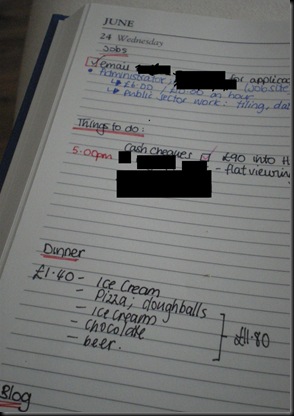 JUNE
24 Wednesday
Jobs
email for applicac
Administrator, (Jobsite
£6.00 / £10.00 an hour.
Public Sector work: filing, dat
Things to do:
5.00pm Cash cheques £90 into H
- flat viewin
Dinner
£1.40 - Ice Cream
- Pizza; doughballs
- ice cream
- chocolate
- beer.
£11.80
Blog